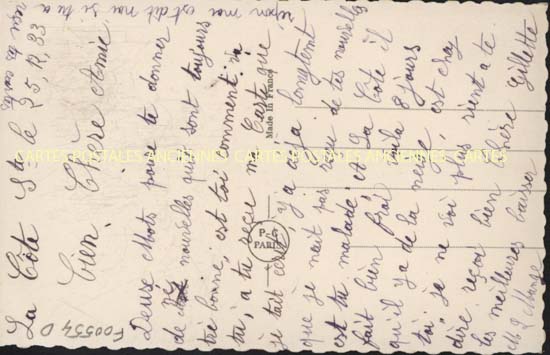 La Côte St le 25, 12, 33
bien. Chère Amie
Deux Mots pour te donner
de nouvelles qui sont toujours
tré bonne, est toi comment va
tu, a tu reçu ma Carte que
je tait y a déja longtemt
que je neut pas reçu de tes nouvelles
est tu malade, et La Côte il
fait bien froi voila 8 jours
qu'il y a de la neige, est chez
toi, je ne voi plus rient a te
dire, reçoi bien Chère Gillette
les meilleurs baisser
repon moi est dit moi si tu a
reçu ma carte
Made in France
P.C. PARIS
F00554 D
CARTES POSTALES ANCIENNES CARTES POSTALES ANCIENNES CARTES POSTALES ANCIENNES